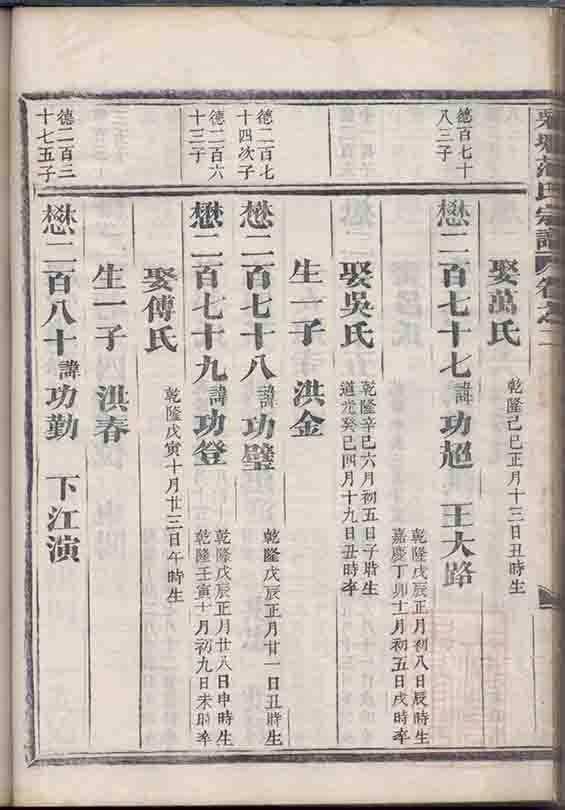 范氏宗譜 卷之二
娶萬氏
乾隆己巳正月十三日丑時生
德百七十
八三子
懋二百七十七諱功超 王大路
乾隆戊辰正月初八日辰時生
嘉慶丁卯十一月初五日戌時卒
娶吳氏
乾隆辛巳六月初五日子時生
道光癸巳四月十九日丑時卒
生一子洪金
德二百七
十四次子
懋二百七十八諱功璧
乾隆戊辰正月廿一日丑時生
德二百六
十三子
懋二百七十九諱功登
乾隆戊辰正月廿八日申時生
乾隆壬寅十月初九日未時卒
娶傅氏
乾隆戊寅十月廿三日午時生
生一子洪春
德二百三
十七五子
懋二百八十諱功勤 下江演